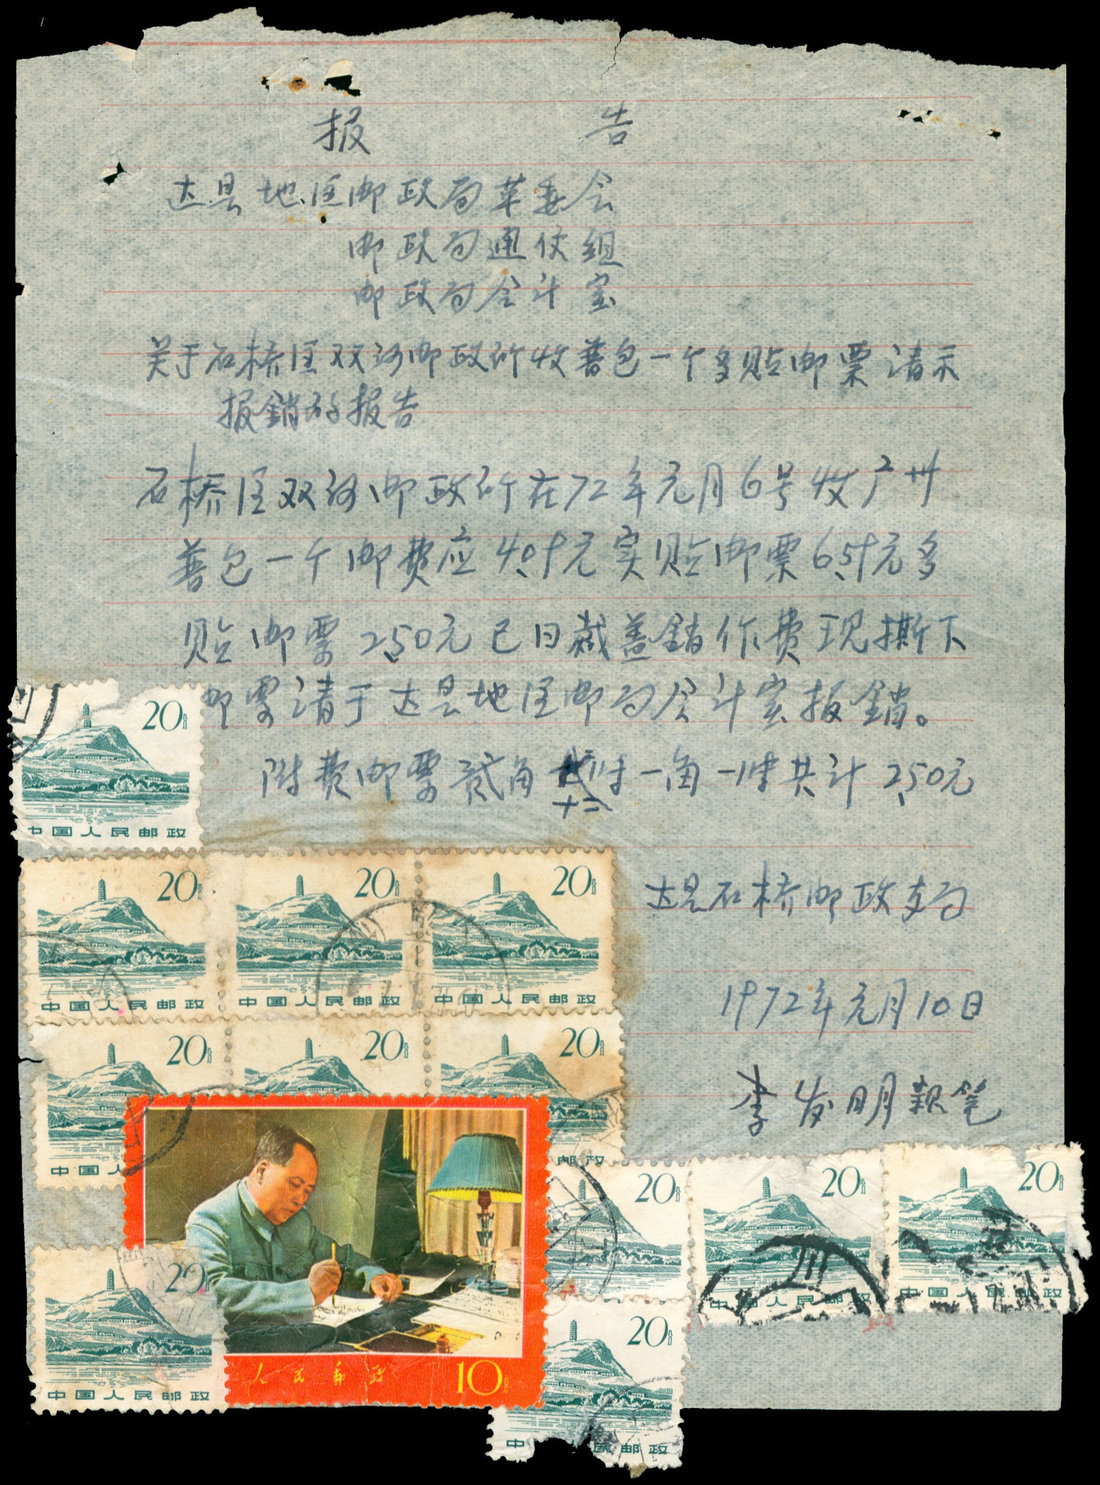 报 告
达县地区邮政局革委会
邮政局通伩组
邮政局会计室
关于石桥区双河邮政所收普包一个多贴邮票请示
报銷的报告
石桥区双河邮政所在72年元月6号收广州
普包一个邮费应4.09元实贴邮票6.59元多
贴邮票2.50元已日戳盖銷作费现撕下
邮票请于达县地区邮局会计室报銷。
附费邮票贰角 一角一件共计2.50元
十二
达县石桥邮政支局
1972年元月10日
李发明亲笔
20
中国人民邮政
20
中国人民邮政
20
中国人民邮政
20
中国人民邮政
20
中国人
20
20
邮政
人民邮政
10
20
中国人民邮政
20
20
中国人民邮政
20
中国人民邮政
20
中 民邮政